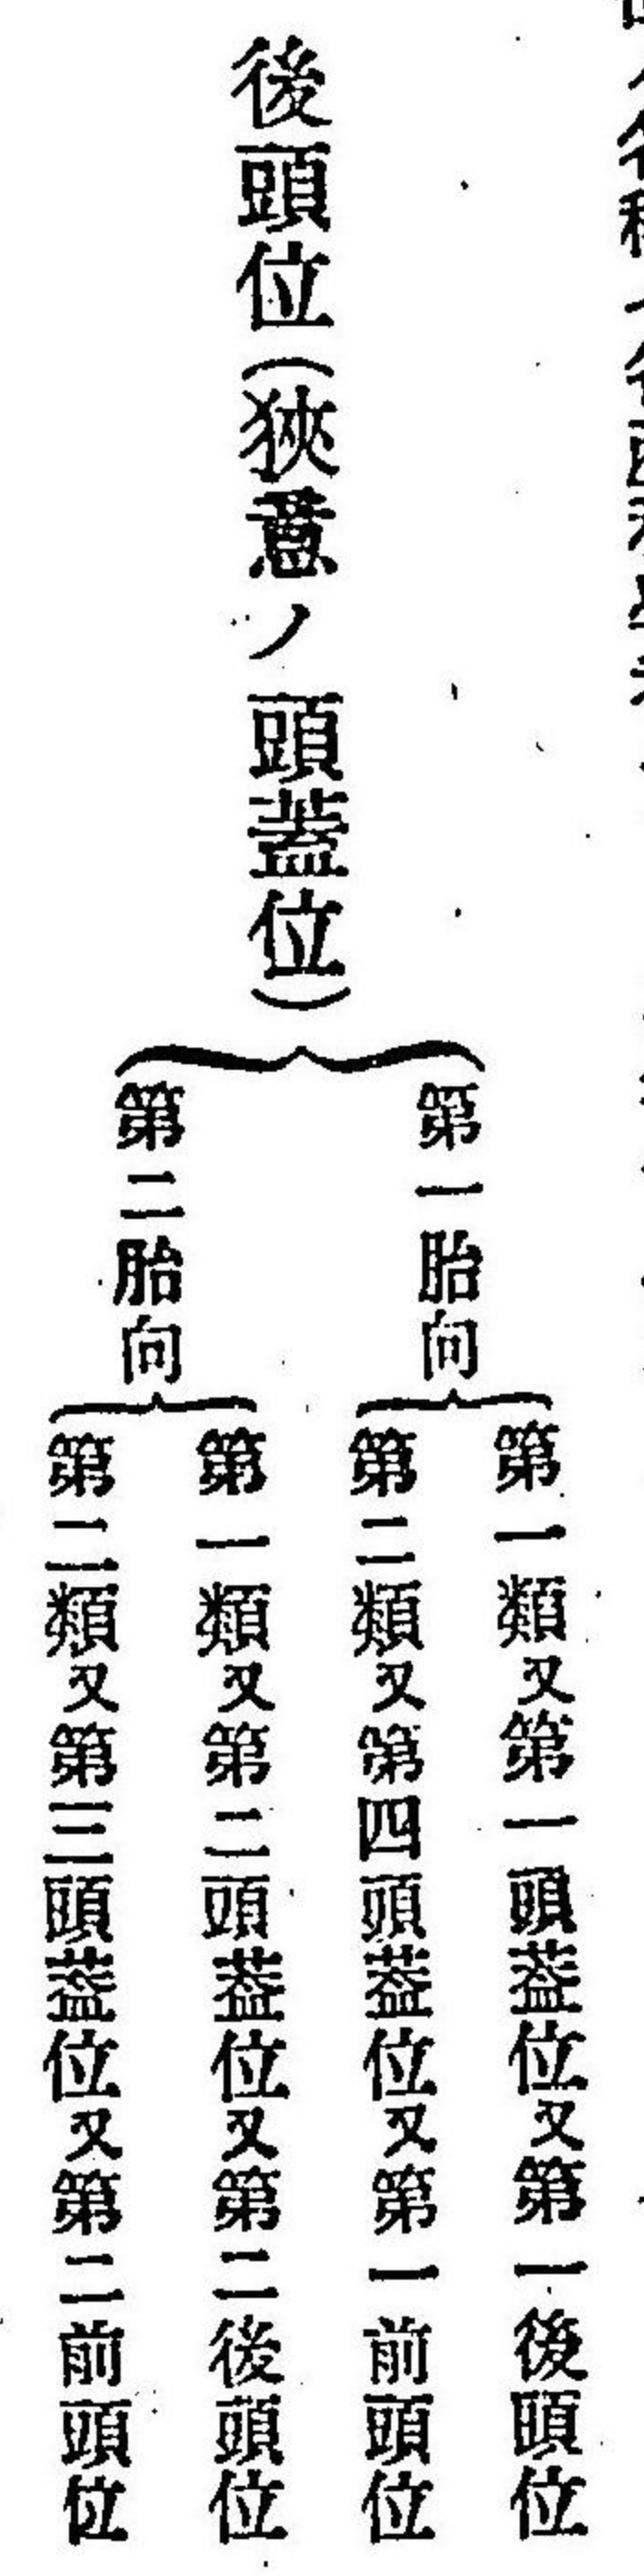 後頭位(狹意ノ頭蓋位)
第一胎向
第一類又第一頭蓋位又第一後頭位
第二類又第四頭蓋位又第一前頭位
第二胎向
第一類又第二頭蓋位又第二後頭位
第二類又第三頭蓋位又第二前頭位